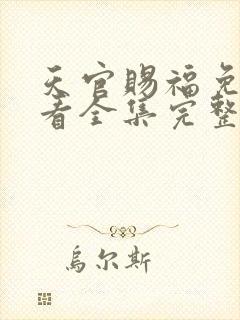 天官赐福免
看全集完整
乌尔斯